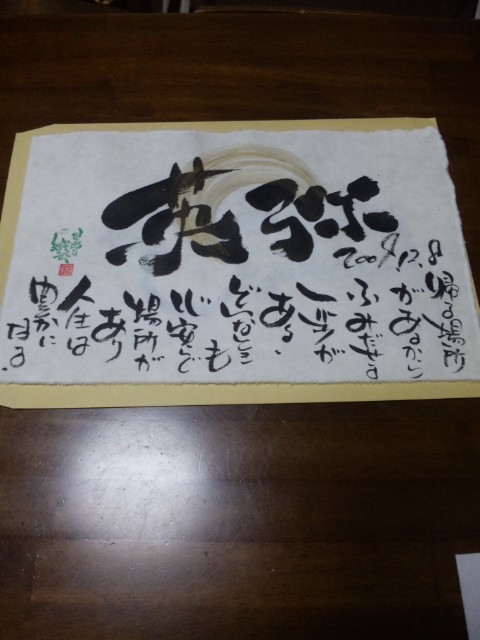 英弥
2009.12.8
帰る場所
があるから
ふみだせる
一歩が
ある、
どんなときも
心安らぐ
場所が
あり
人生は
豊かに
なる。